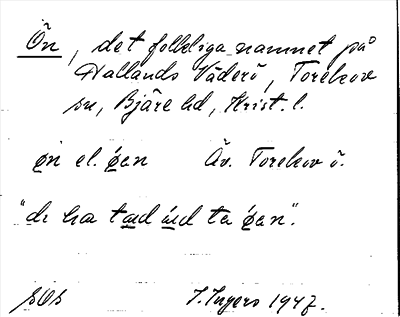 Ön, det folkliga namnet på
Hallands Väderö, Torekov
sn, Bjäre hd, Krist. l.
øn el. øen Äv. Torekov ö.
"di ha tæd úd te øen".
SOs J. Ingers 1947.